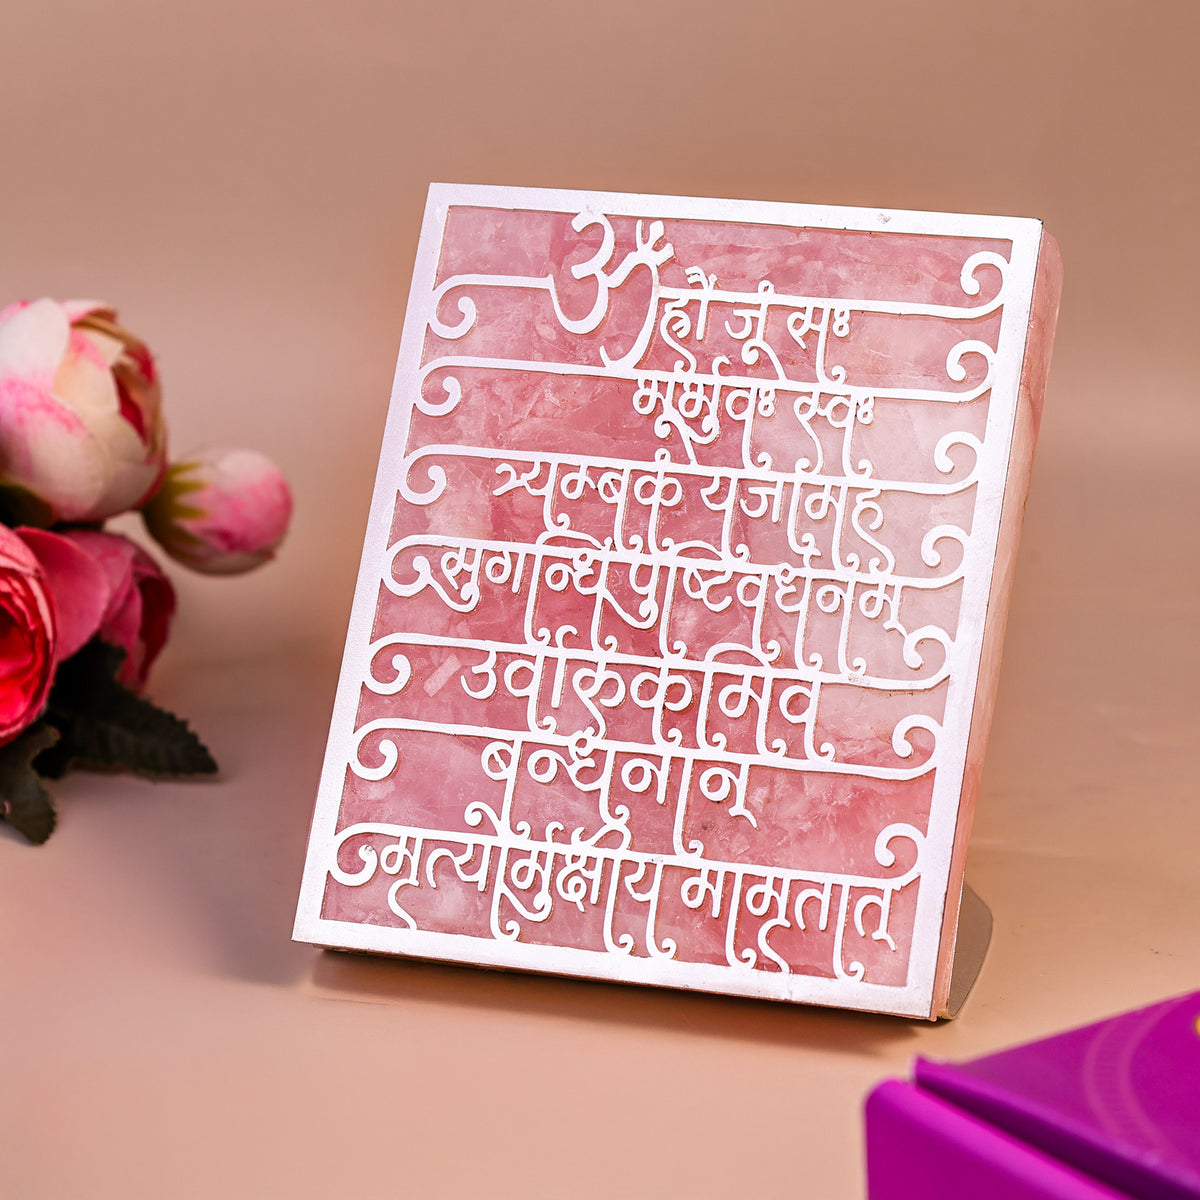 ॐ ह्रौं जूं सः
भूर्भुवः स्वः
त्र्यम्बकं यजामहे
सुगन्धिं पुष्टिवर्धनम्
उर्वारुकमिव
बन्धनान्
मृत्योर्मुक्षीय मामृतात्